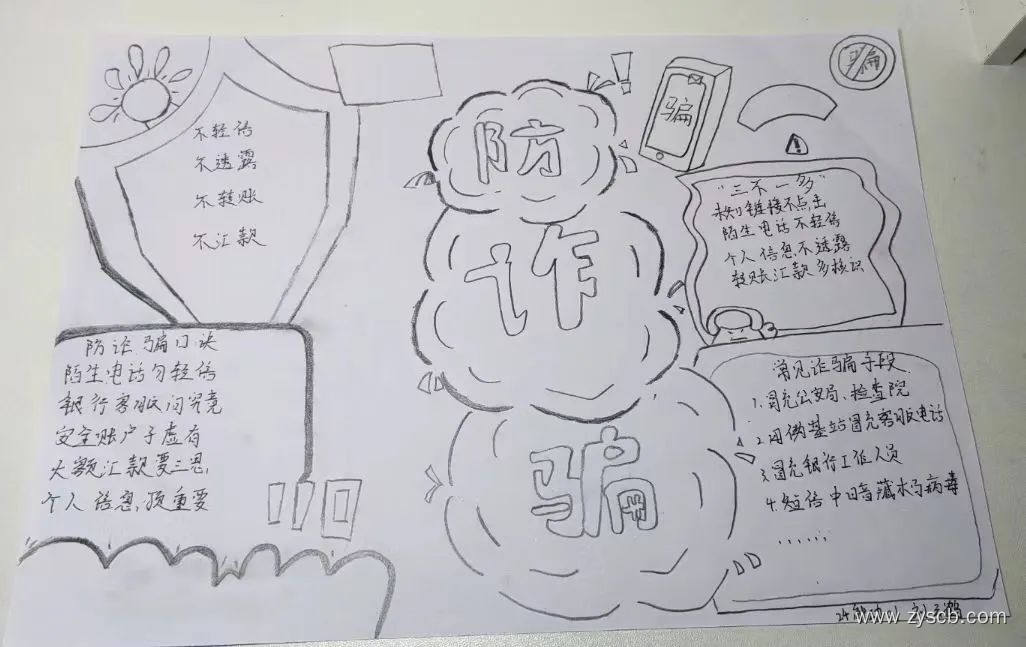 不轻信
不透露
不转账
不汇款
防诈骗口诀
陌生电话勿轻信
银行客服问究竟
安全账户子虚有
大额汇款要三思
个人信息顶重要
防
诈
骗
骗
骗
"三不一多"
未知链接不点击
陌生电话不轻信
个人信息不透露
转账汇款多核识
常见诈骗手段
1.冒充公安局、检查院
2.用伪基站冒充客服电话
3.冒充银行工作人员
4.短信中暗藏木马病毒
......
www.zyscb.com